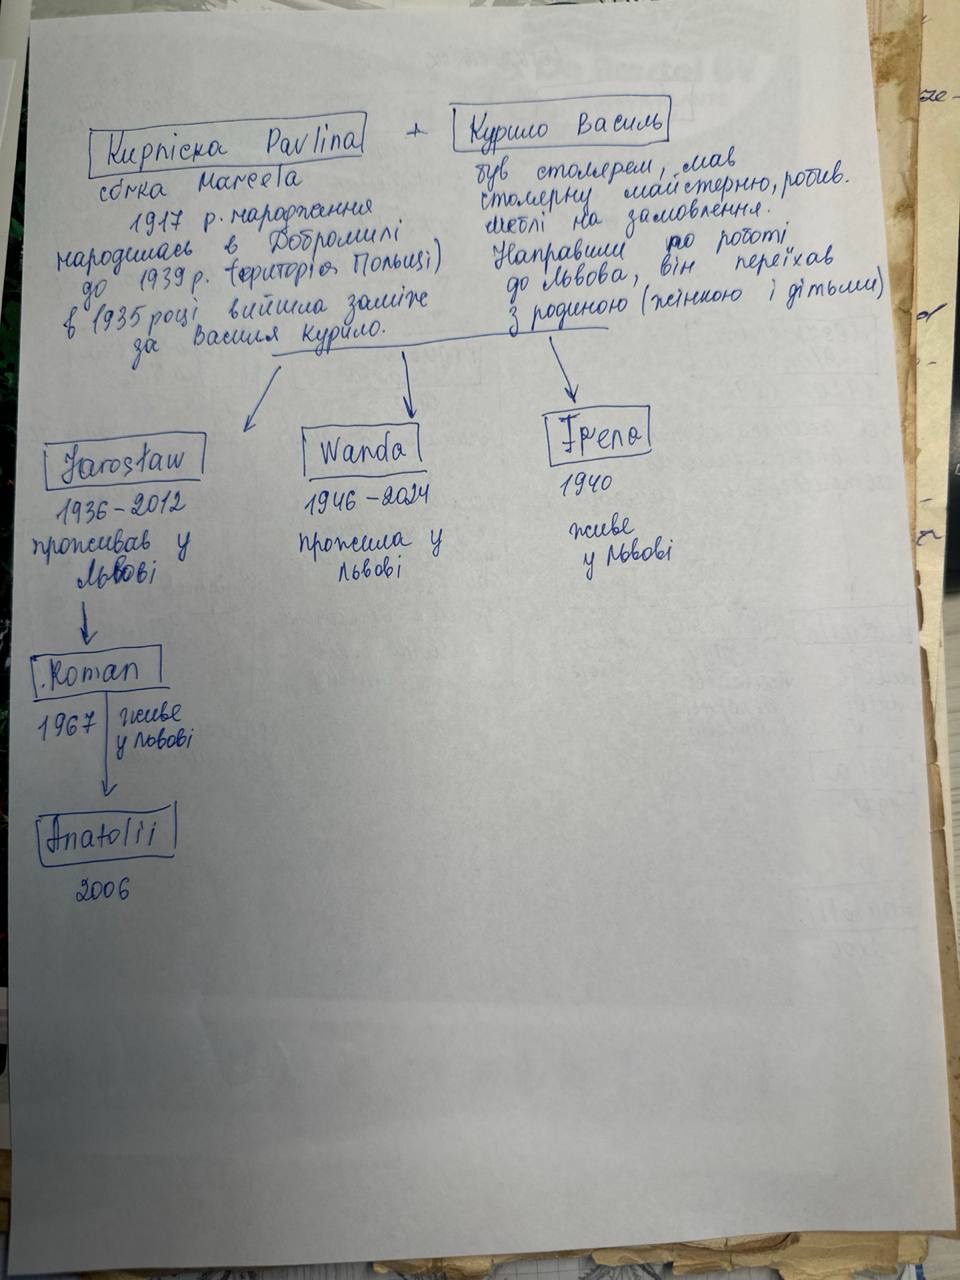 Кирпіска Pavlina + Курило Василь
сбнка Marcela
1917 р. народження
народилась в Добромилі
до 1939 р. (територія Польщі)
в 1935 році вийшла заміж
за Василя Курило.
був столярем, мав
столярну майстерню, робив.
меблі на замовлення.
Направили по роботі
до Львова, він переїхав
з родиною (жінкою і дітьми)
Jarosław
1936 - 2012
проживав у
Львові
Wanda
1946 - 2024
прожила у
Львові
Ірена
1940
живе
у Львові
Roman
1967 живе
у Львові
Anatolii
2006